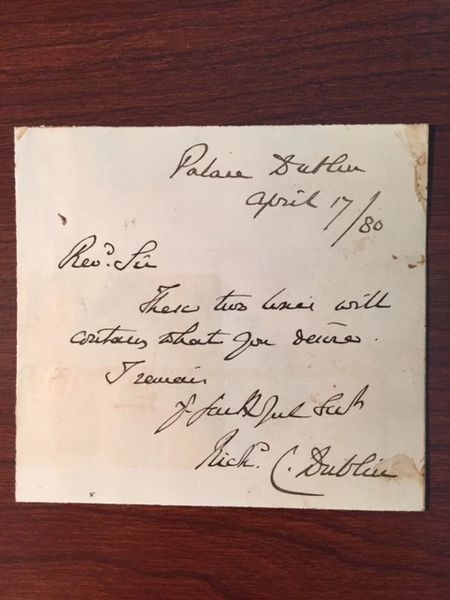 Palace Dublin
April 17/80
Revd. Sir
These two lines will
contain what you desire.
I remain
Yr faithful Servt
Richd. C. Dublin